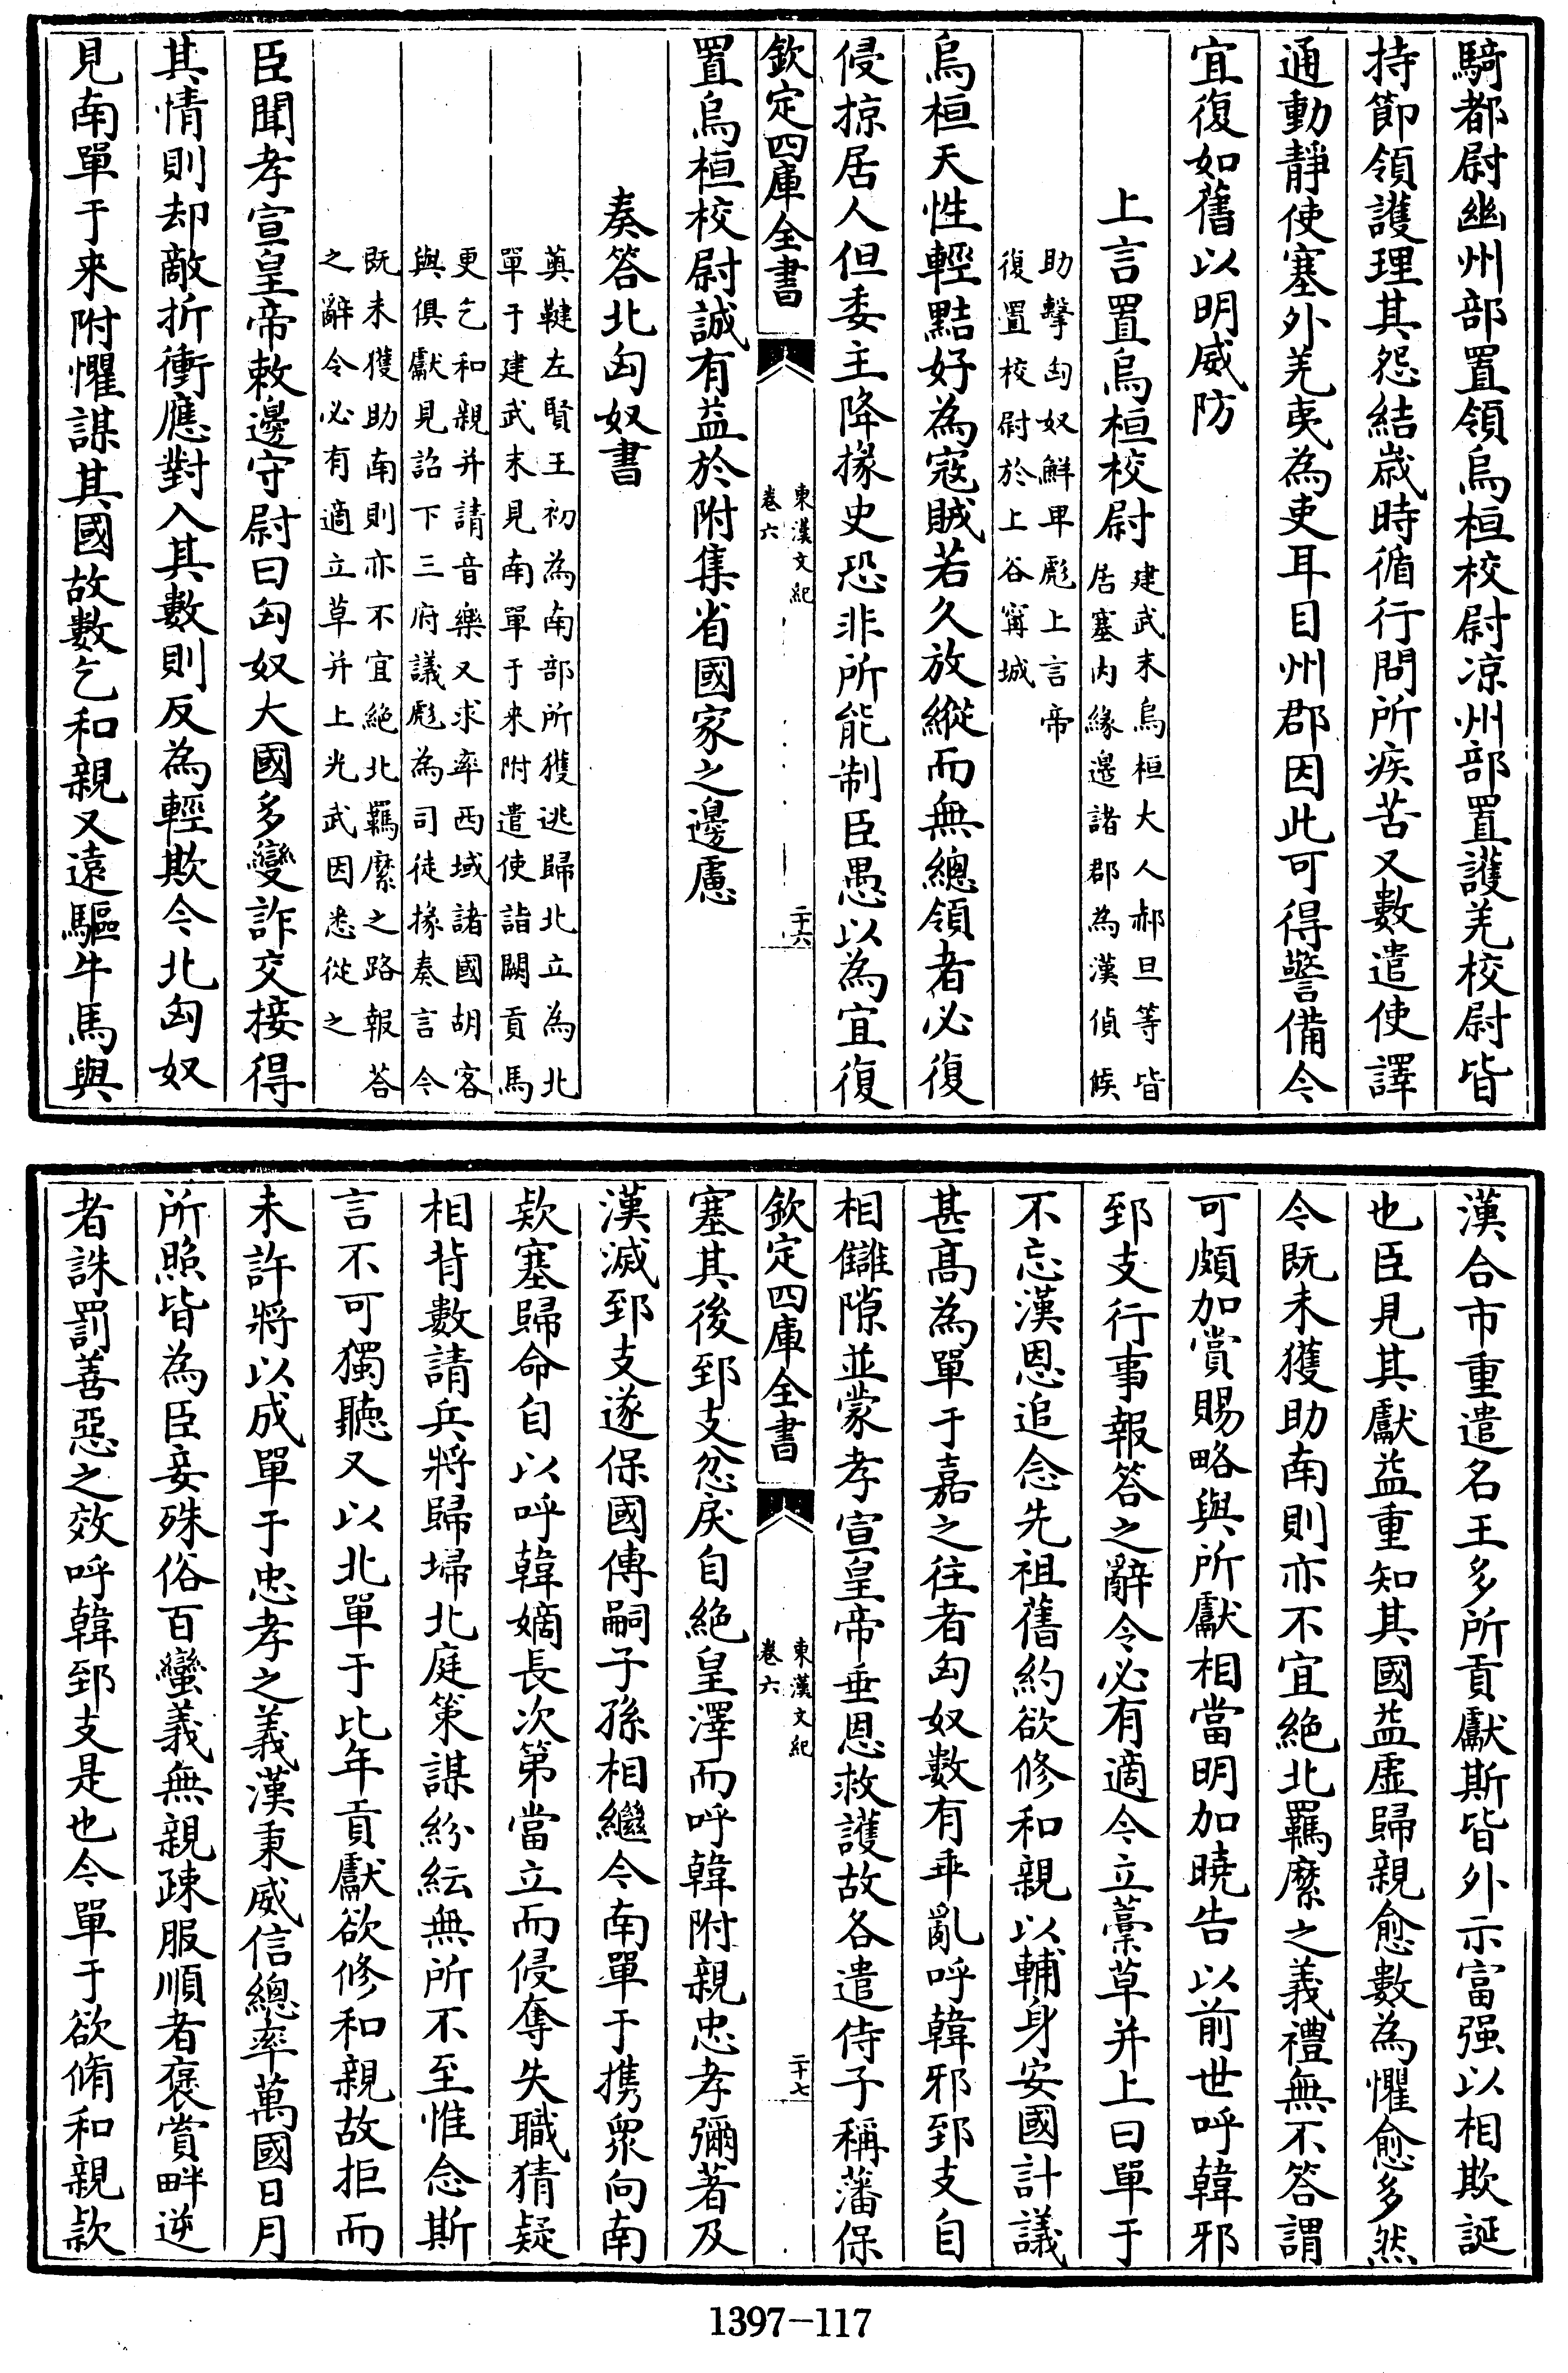 騎都尉幽州部置領烏桓校尉凉州部置護羌校尉皆
持節領護理其怨結歳時循行問所疾苦又數遣使譯
通動靜使塞外羌夷為吏耳目州郡因此可得警備今
宜復如舊以明威防
上言置烏桓校尉
建武末烏桓大人郝旦等皆
居塞内緣邊諸郡為漢偵候
助擊匈奴鮮卑彪上言帝
復置校尉於上谷甯城
烏桓天性輕黠好為寇賊若久放縱而無總領者必復
侵掠居人但委主降掾史恐非所能制臣愚以為宜復
欽定四庫全書
東漢文紀
卷六
二十六
置烏桓校尉誠有益於附集省國家之邊慮
奏答北匈奴書
薁鞬左賢王初為南部所獲逃歸北立為北
單于建武末見南單于来附遣使詣闕貢馬
更乞和親并請音樂又求率西域諸國胡客
與俱獻見詔下三府議彪為司徒掾奏言今
既未獲助南則亦不宜絶北羈縻之路報答
之辭令必有適立草并上光武因悉從之
臣聞孝宣皇帝敕邊守尉曰匈奴大國多變詐交接得
其情則却敵折衝應對入其數則反為輕欺今北匈奴
見南單于来附懼謀其國故數乞和親又遠驅牛馬與
漢合市重遣名王多所貢獻斯皆外示富强以相欺誕
也臣見其獻益重知其國益虚歸親愈數為懼愈多然
今既未獲助南則亦不宜絶北羈縻之義禮無不答謂
可頗加賞賜略與所獻相當明加曉告以前世呼韓邪
郅支行事報答之辭令必有適今立藁草并上曰單于
不忘漢恩追念先祖舊約欲修和親以輔身安國計議
甚高為單于嘉之往者匈奴數有乖亂呼韓邪郅支自
相讎隙並蒙孝宣皇帝垂恩救護故各遣侍子稱藩保
欽定四庫全書
東漢文紀
卷六
二十七
塞其後郅支忿戾自絶皇澤而呼韓附親忠孝彌著及
漢滅郅支遂保國傳嗣子孫相繼今南單于携衆向南
欵塞歸命自以呼韓嫡長次第當立而侵奪失職猜疑
相背數請兵將歸埽北庭策謀紛紜無所不至惟念斯
言不可獨聽又以北單于比年貢獻欲修和親故拒而
未許將以成單于忠孝之義漢秉威信總率萬國日月
所照皆為臣妾殊俗百蠻義無親疎服順者褒賞畔逆
者誅罰善惡之效呼韓郅支是也今單于欲脩和親欵
1397-117